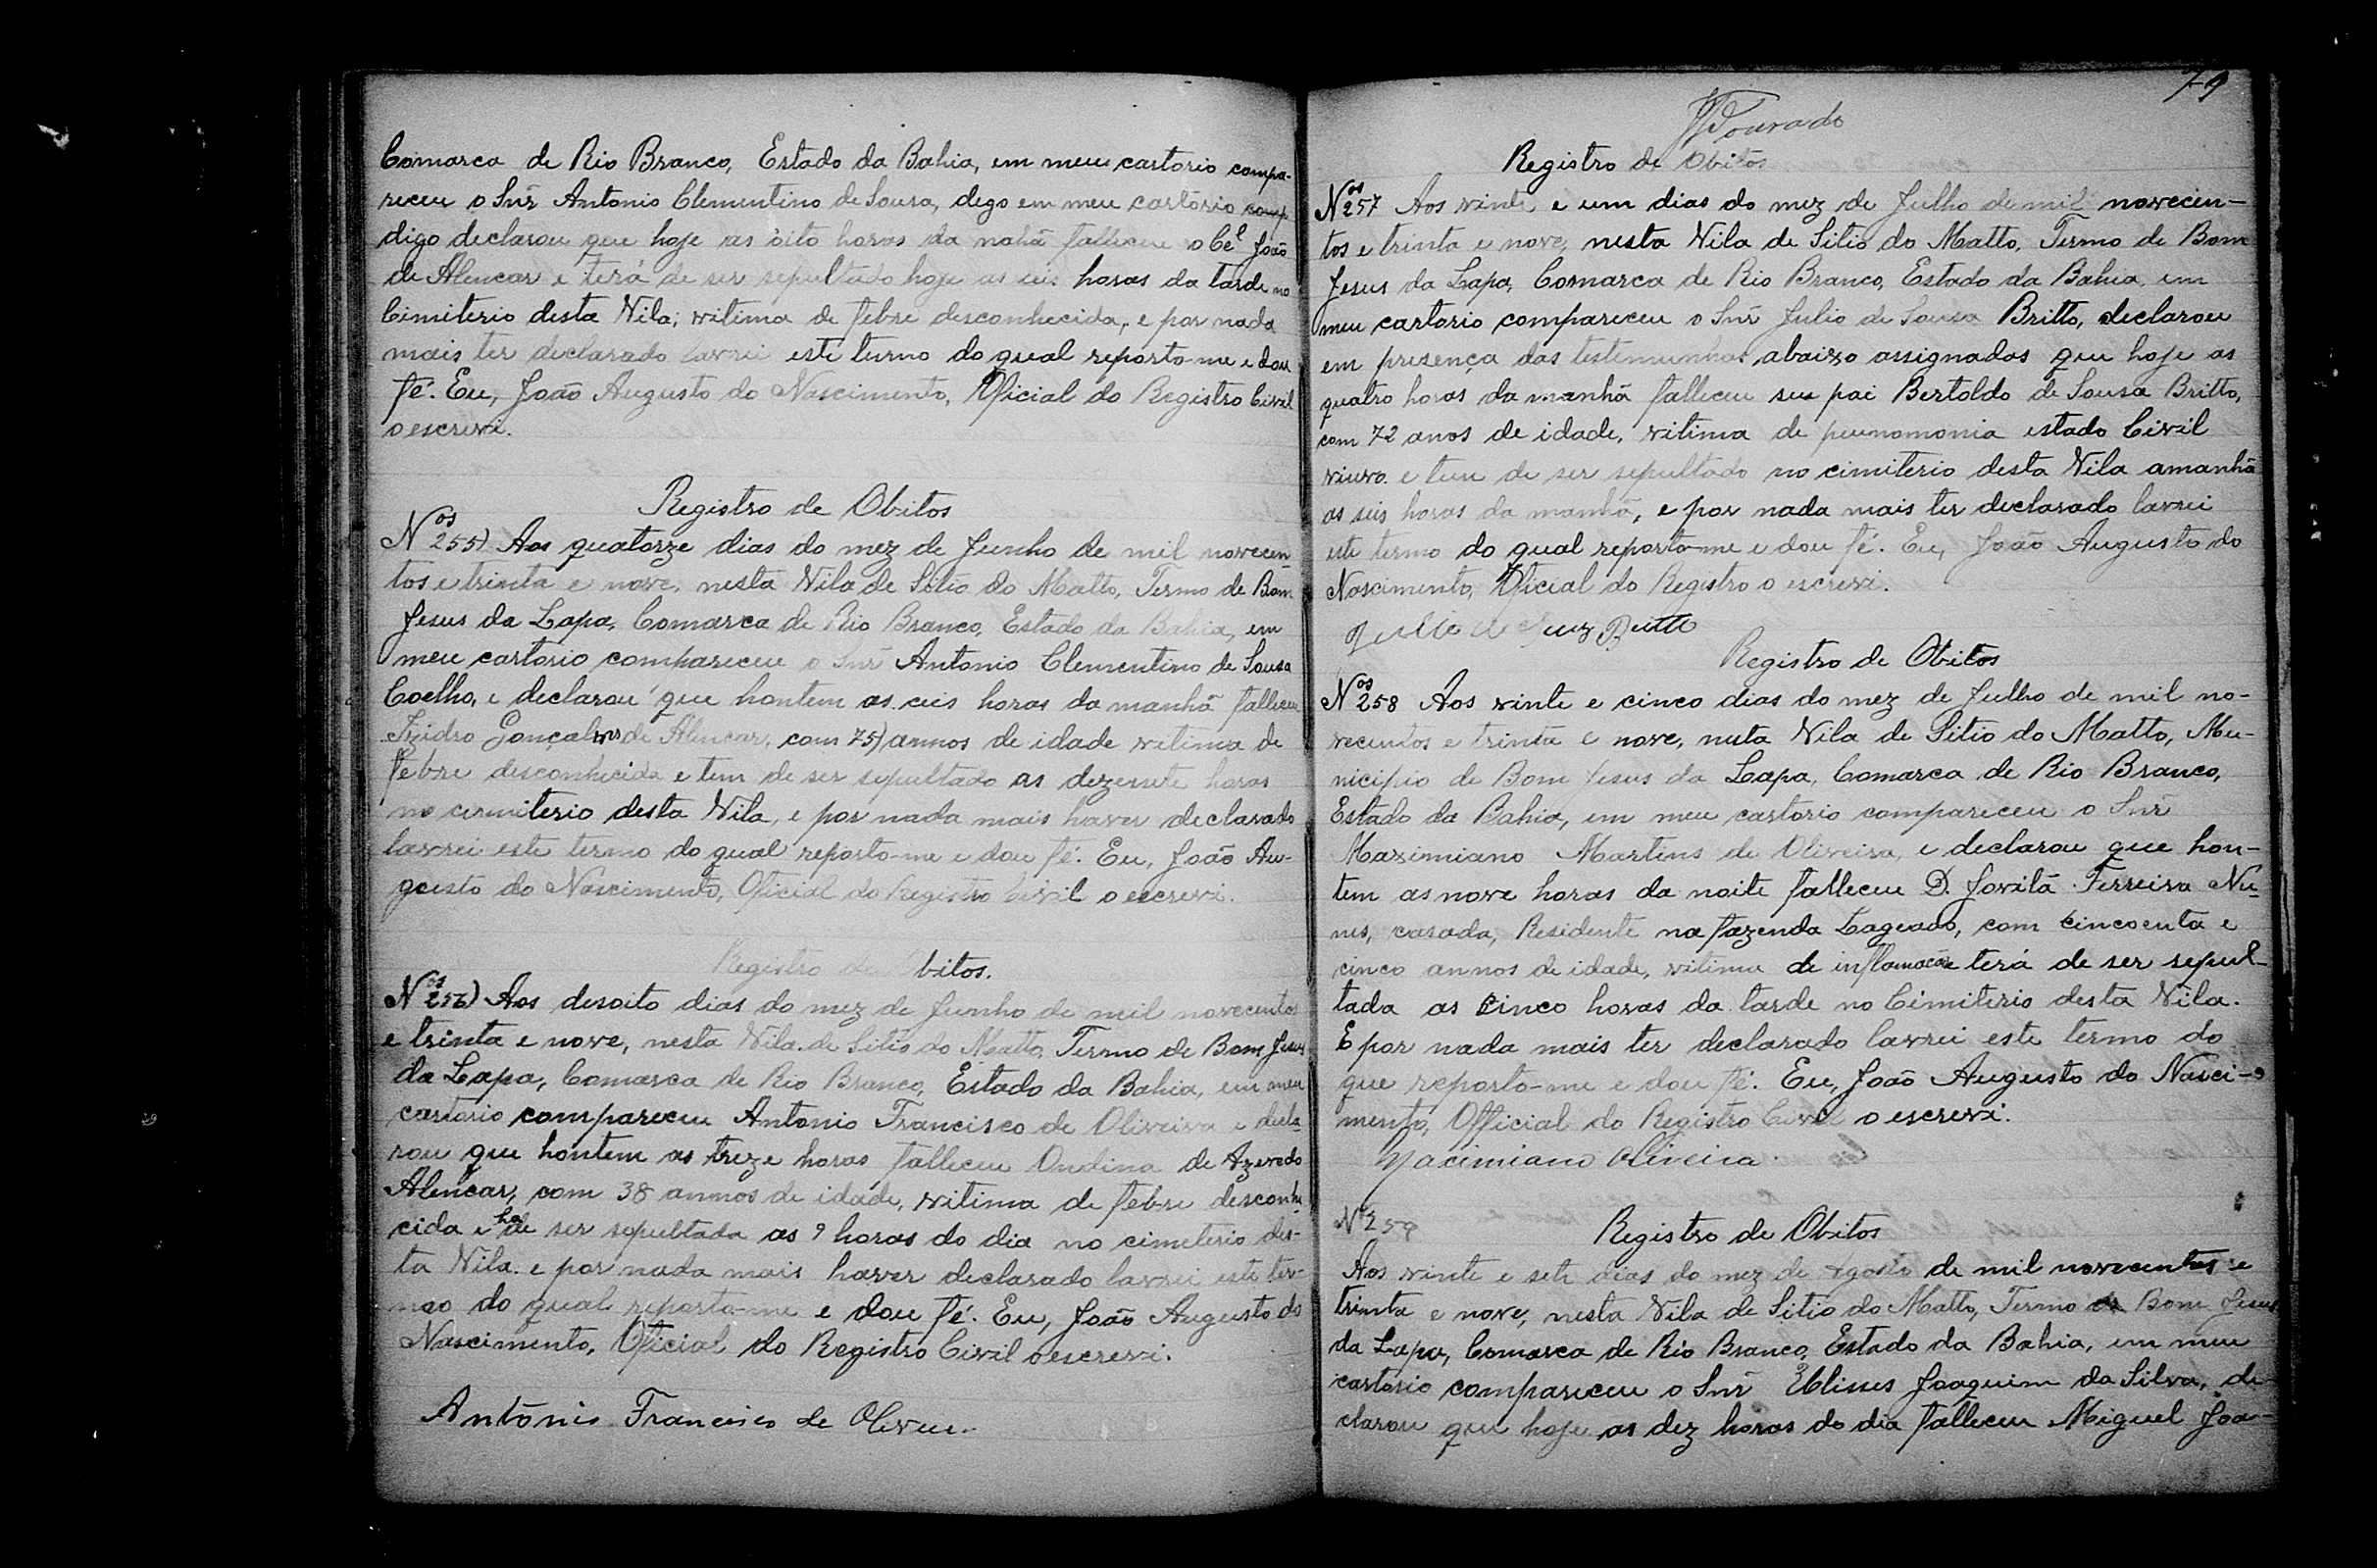 Comarca de Rio Branco, Estado da Bahia, em meu cartorio compa-
receu o Snr̃ Antonio Clementino de Sousa, dego em meu cartorio comp
digo declarou que hoje as oito horas da nahã falleceu o Cel João
de Alencar e terá de ser sepultado hoje as seis horas da tarde no
Cimiterio desta Vila; vitima de febre desconhecida, e por nada
mais ter declarado lavrei este turmo do qual reporto-me e dou
fé. Eu, João Augusto do Nascimento, Oficial do Registro Civil
o escrevi.
Registro de Obitos
Nos 255) Aos quatorze dias do mez de Junho de mil novecen-
tos e trinta e nove, nesta Vila de Sitio do Matto, Termo de Bom
Jesus da Lapa, Comarca de Rio Branco, Estado da Bahia, em
meu cartorio compareceu o Snr̃ Antonio Clementino de Sousa
Coelho, e declarou que hontem as seis horas da manhã falleceu
Izidro Gonçalves de Alencar, com 75) annos de idade vitima de
febre desconhecida e tem de ser sepultado as dezessete horas
no cimiterio desta Vila, e por nada mais haver declarado
lavrei este termo do qual reporto-me e dou fé. Eu, João Au-
gusto do Nascimento, Oficial do Registro Civil o escrevi.
Registro de Obitos.
Nos 256) Aos desoito dias do mez de Junho de mil novecentos
e trinta e nove, nesta Vila de Sitio do Matto, Termo de Bom Jesus
da Lapa, Comarca de Rio Branco, Estado da Bahia, em meu
cartorio compareceu Antonio Francisco de Oliveira e decla-
rou que hontem as treze horas falleceu Ondina de Azevedo
Alencar, com 38 annos de idade, vitima de febre desconhe
cida e ha de ser sepultada as 9 horas do dia no cimeterio des-
ta Vila. e por nada mais haver declarado lavrei este ter-
mo do qual reporto-me e dou fé. Eu, João Augusto do
Nascimento, Oficial do Registro Civil o escrevi.
Antônio Francisco de
79
Dourado
Registro de Obitos
Nos 257 Aos vinte e um dias do mez de Julho de mil novecen-
tos e trinta e nove, nesta Vila de Sitio do Matto, Termo de Bom
Jesus da Lapa, Comarca de Rio Branco, Estado da Bahia, em
meu cartorio compareceu o Snr̃ Julio de Sousa Britto, declarou
em presença das testimunhas abaixo assignadas que hoje as
quatro horas da manhã falleceu seu pai Bertoldo de Sousa Britto,
com 72 anos de idade, vitima de peunomonia estado Civil
viuvo. e tem de ser sepultado no cimiterio desta Vila amanhã
as seis horas da manhã, e por nada mais ter declarado lavrei
este termo do qual reporto-me e dou fé. Eu, João Augusto do
Nascimento, Oficial do Registro o escrevi.
Registro de Obitos
Nos 258 Aos vinte e cinco dias do mez de Julho de mil no-
vecentos e trinta e nove, nesta Vila de Sitio do Matto, Mu-
nicipio de Bom Jesus da Lapa, Comarca de Rio Branco,
Estado da Bahia, em meu cartorio compareceu o Snr̃
Maximiano Martins de Oliveira, e declarou que hon-
tem as nove horas da noite falleceu D. Jovitã Ferreira Nu-
nes, casada, Residente na fazenda Lageado, com cincoenta e
cinco annos de idade, vitima de inflamação e terá de ser sepul-
tada as cinco horas da tarde no Cimiterio desta Vila.
E por nada mais ter declarado lavrei este termo do
que reporto-me e dou fé. Eu, João Augusto do Nasci-
mento, Official do Registro Civil o escrevi.
Macimiano Oliveira
Nº 259
Registro de Obitos
Aos vinte e sete dias do mez de Agosto de mil novecentos e
trinta e nove, nesta Vila de Sitio do Matto, Termo de Bom Jesus
da Lapa, Comarca de Rio Branco, Estado da Bahia, em meu
cartorio compareceu o Snr̃ Joaquim da Silva, de-
clarou que hoje as dez horas do dia falleceu Miguel Joa-